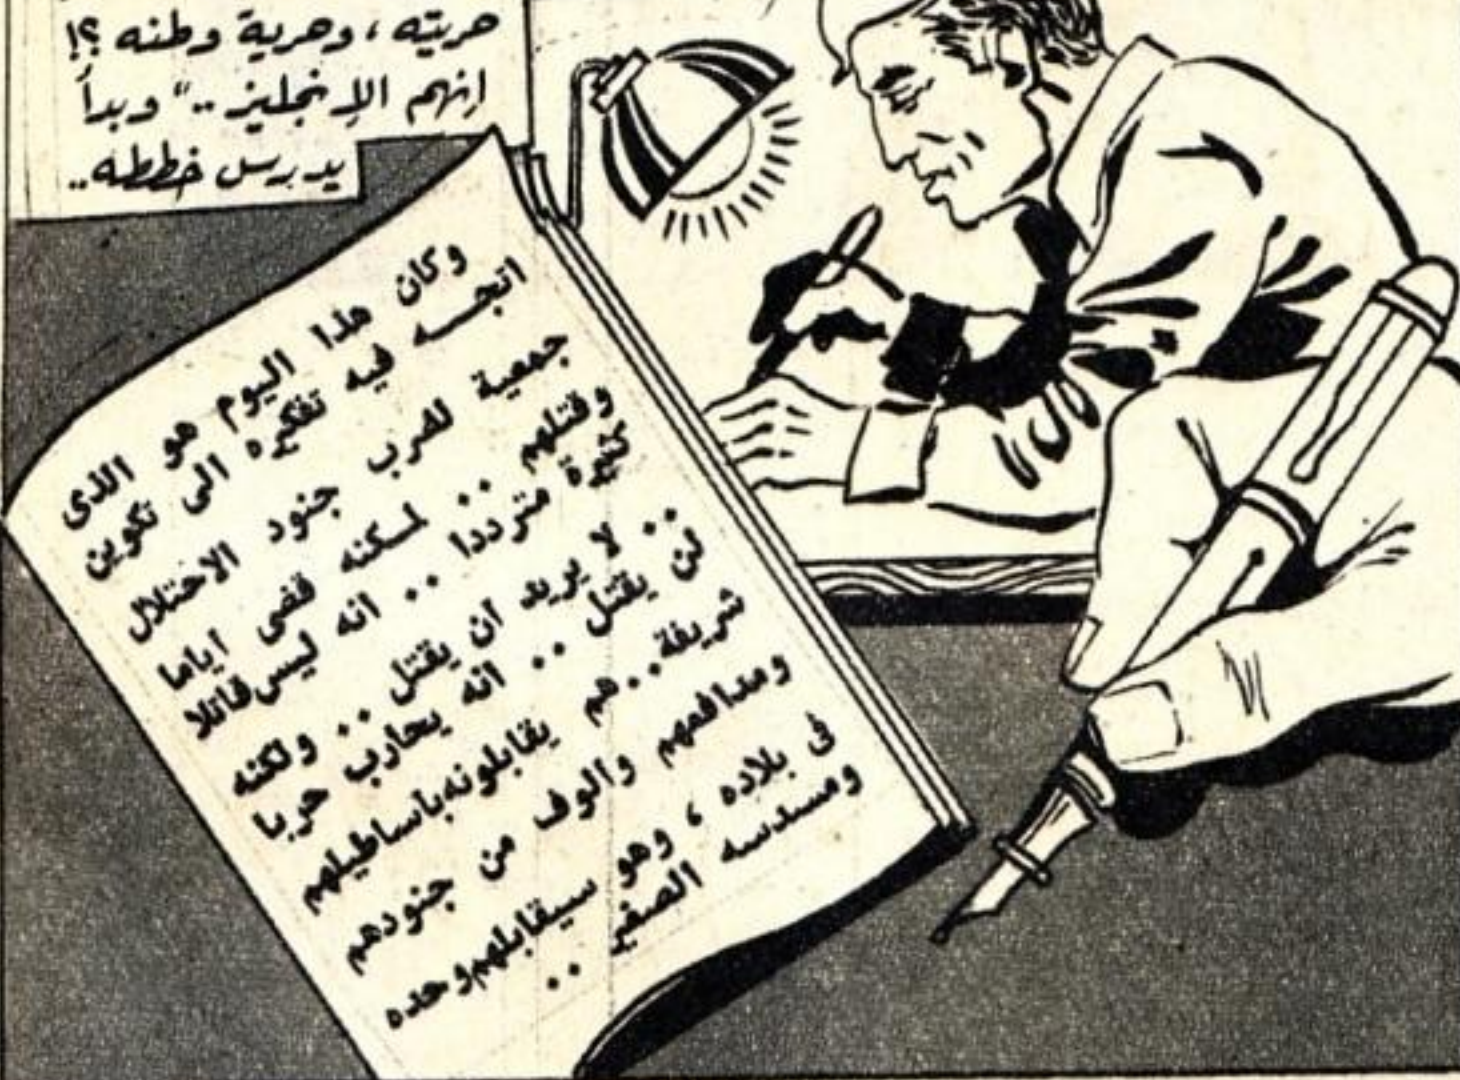 حريته ، وحرية وطنه ؟!
انهم الإنجليز .. " وبدأ
يدرس خططه ..
وكان هذا اليوم هو الذى
اتجه فيه تفكيره الى تكوين
جمعية لضرب جنود الاحتلال
وقتلهم .. لكنه قضى أياما
كثيرة مترددا .. انه ليس قاتلا
.. لا يريد ان يقتل .. ولكنه
لن يقتل .. انه يحارب حربا
شريفة .. هم يقابلونه بأساطيلهم
ومدافعهم والوف من جنودهم
فى بلاده ، وهو سيقابلهم وحده
ومسدسه الصغير ..